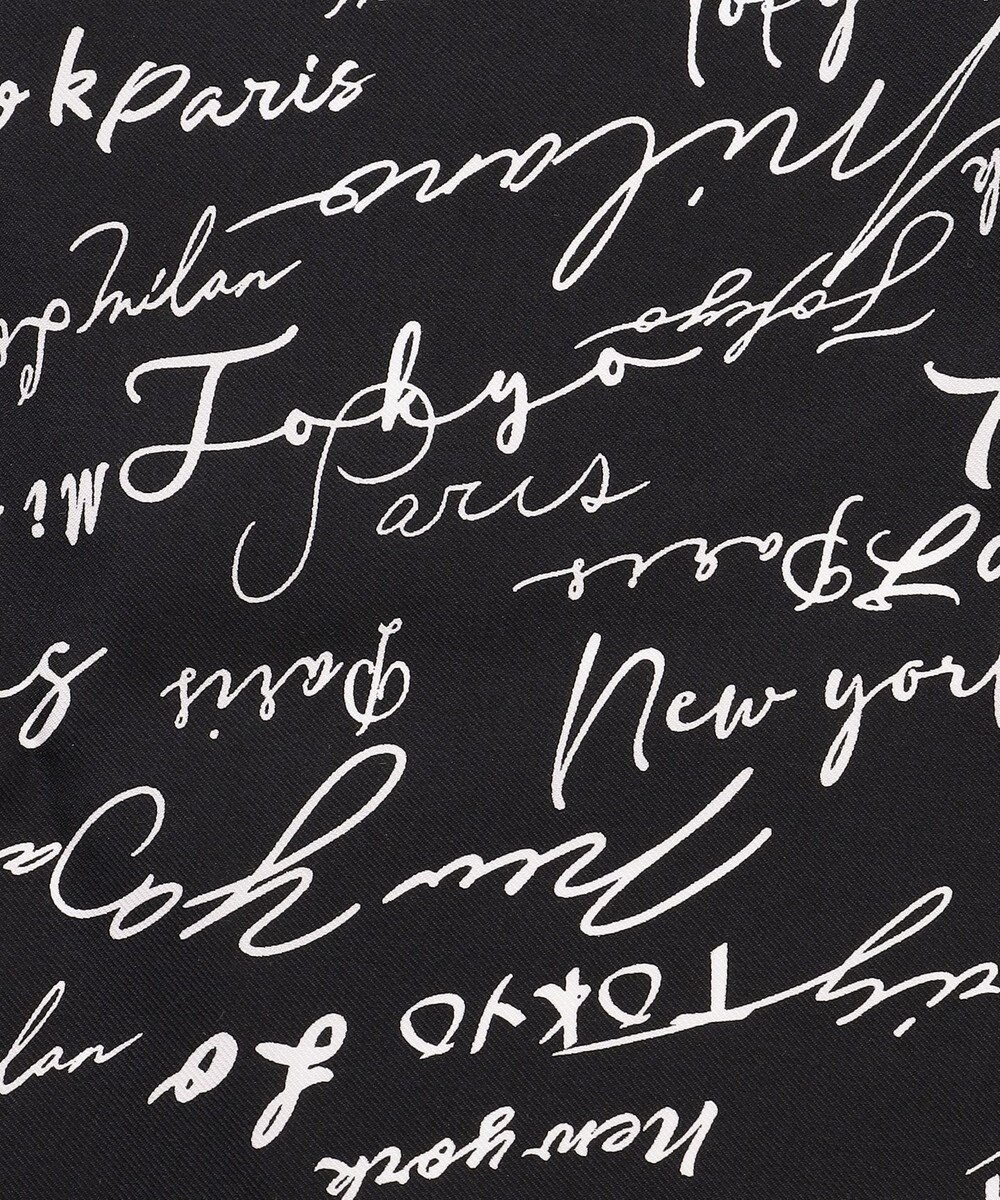 k Paris
Milano
milan
Tokyo
Tokyo
Paris
Mi
Paris
Paris
New york
New Yo
TOKYO
lan
Lo
New york